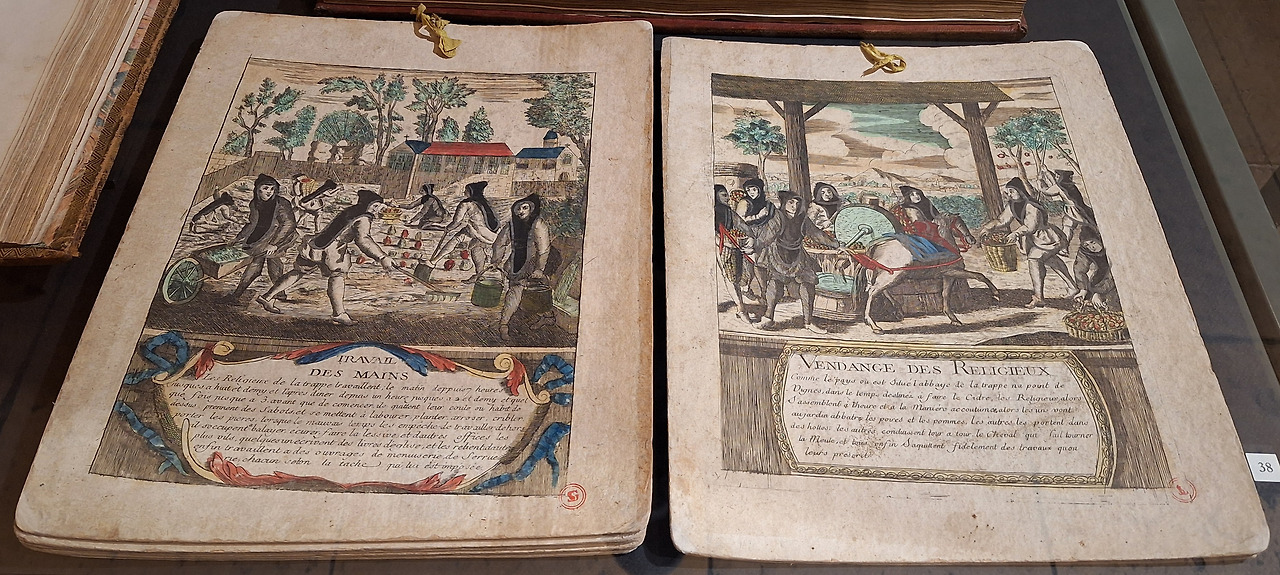 TRAVAIL
DES MAINS
Les Religieux de la trappe travaillent le matin deppuis 7 heures
jusques a huit et demy et l'apres diner depuis un heure jusques a 2 et demy et quel
que fois jusque a 3 avant que de commencer ils quittent leur coule ou habit de
dessus prennent des Sabots et se mettent a labourer planter arroser cribler
porter les pierres lorsque le mauvais temps les empeche de travailler dehors
il s'occupent balayer ecurer faire la lessive et d'autres offices les
plus vils, quelques uns ecrivent des livres d'eglise, et les relient d'autres
enfin travaillent a des ouvrages de menuserie de Serrue
rie, chacun selon la tache qui lui est imposée
VENDANGE DES RELIGIEUX
Comme le pays ou est situé l'abbaye de la trappe na point de
Vignes, dans le temps destinez a faire le Cidre, les Religieux alors
S'assemblent a l'heure et a la Maniere accoutumez, alors les uns vont
au jardin abbatre les poires et les pommes, les autres les portent dans
des hottes, les autres conduisent tour a tour le Cheval qui fait tourner
la Meule, et tous enfin S'aquittent fidelement des travaux quon
leurs prescrit
38